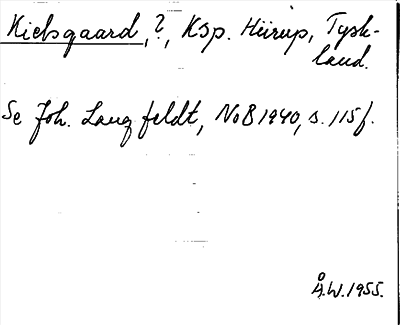 Kielsgaard, ?, Ksp. Hürup, Tysk-
land.
Se Joh. Langfeldt, NoB 1940, s. 115 f.
Å.W. 1955.